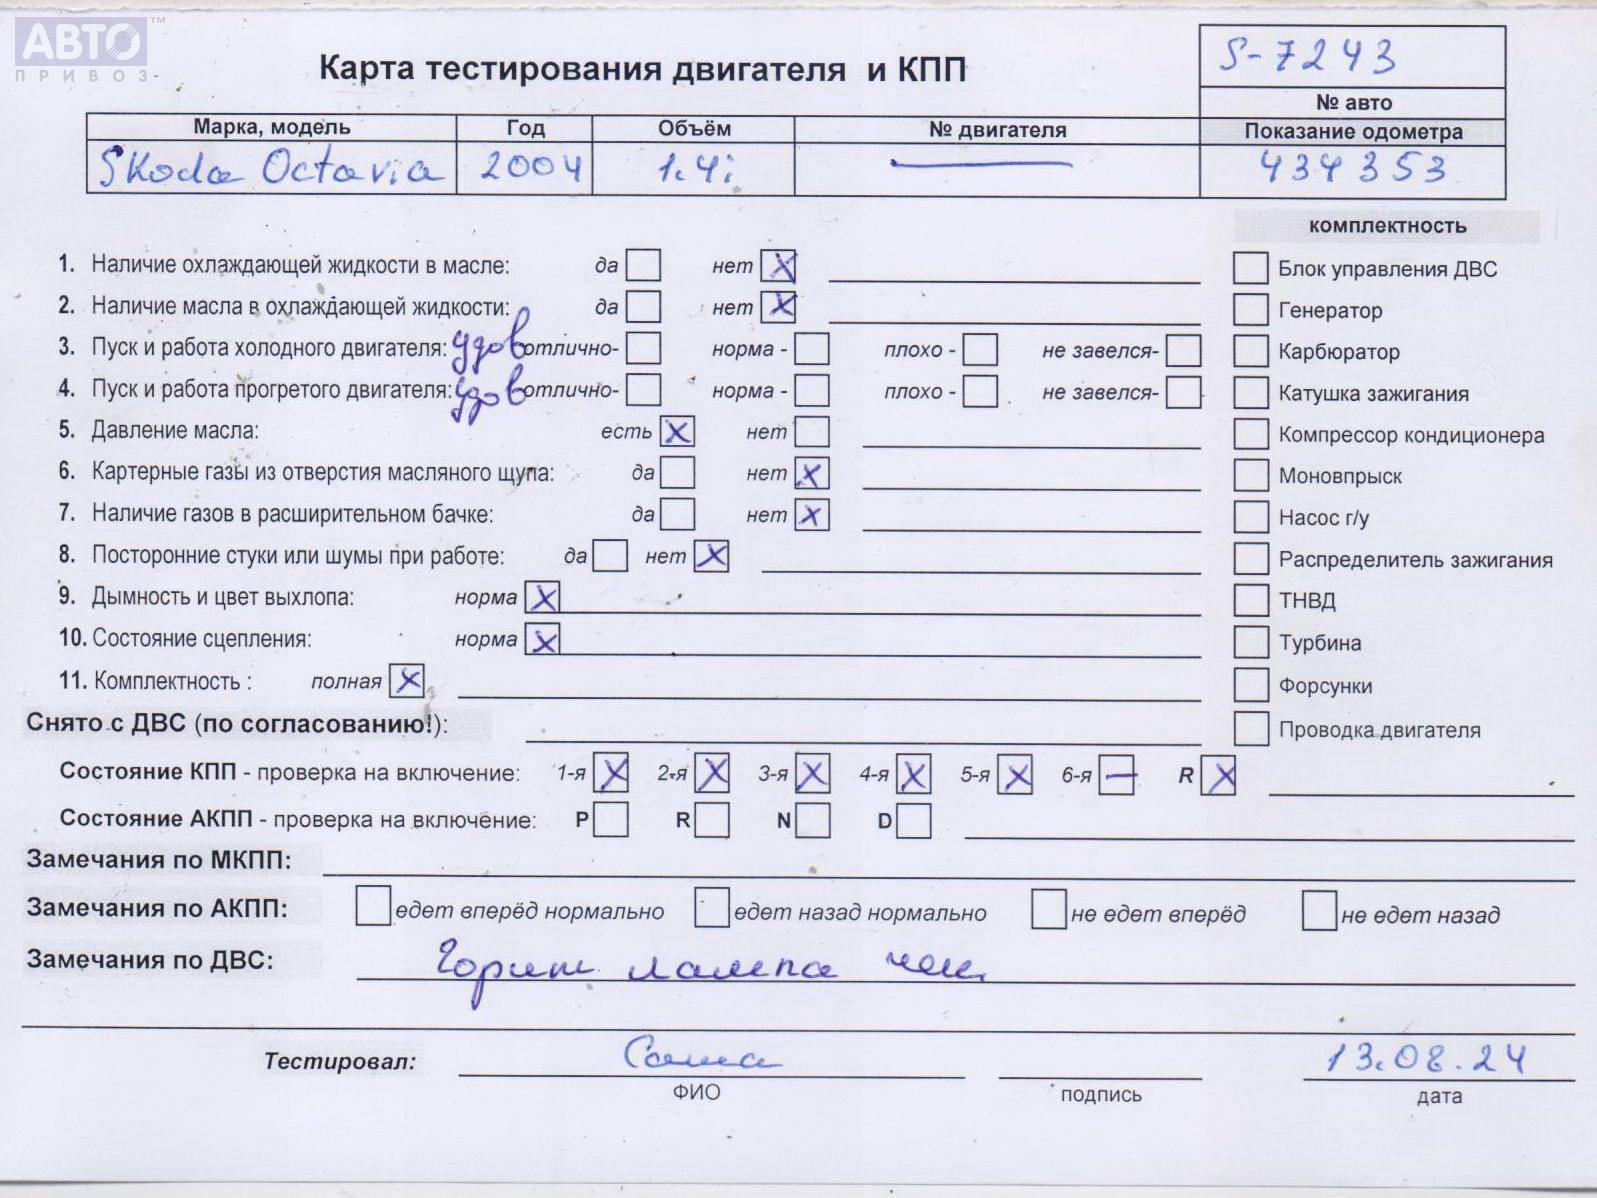 АВТО™
ПРИВОЗ
Карта тестирования двигателя и КПП
S-7243
№ авто
Марка, модель Год Объём № двигателя Показание одометра
Skoda Octavia 2004 1.4i — 434353
комплектность
1. Наличие охлаждающей жидкости в масле: да нет X
Блок управления ДВС
2. Наличие масла в охлаждающей жидкости: да нет X
Генератор
3. Пуск и работа холодного двигателя: удов отлично- норма - плохо - не завелся-
Карбюратор
4. Пуск и работа прогретого двигателя: удов отлично- норма - плохо - не завелся-
Катушка зажигания
5. Давление масла: есть X нет
Компрессор кондиционера
6. Картерные газы из отверстия масляного щупа: да нет X
Моновпрыск
7. Наличие газов в расширительном бачке: да нет X
Насос г/у
8. Посторонние стуки или шумы при работе: да нет X
Распределитель зажигания
9. Дымность и цвет выхлопа: норма X
ТНВД
10. Состояние сцепления: норма X
Турбина
11. Комплектность : полная X
Форсунки
Снято с ДВС (по согласованию!):
Проводка двигателя
Состояние КПП - проверка на включение: 1-я X 2-я X 3-я X 4-я X 5-я X 6-я — R X
Состояние АКПП - проверка на включение: P R N D
Замечания по МКПП:
Замечания по АКПП: едет вперёд нормально едет назад нормально не едет вперёд не едет назад
Замечания по ДВС: Горит лампа чек
Тестировал: Саша 13.08.24
ФИО подпись дата